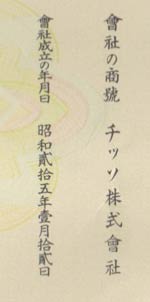 會社の商號　チッソ株式會社
會社成立の年月日　昭和貳拾五年壹月拾貳日